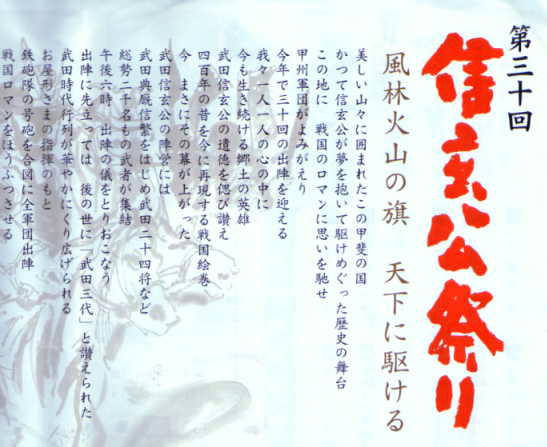 第三十回
信玄公祭り
風林火山の旗　天下に駆ける
美しい山々に囲まれたこの甲斐の国
かつて信玄公が夢を抱いて駆けめぐった歴史の舞台
この地に　戦国のロマンに思いを馳せ
甲州軍団がよみがえり
今年で三十回の出陣を迎える
我々一人一人の心の中に
今も生き続ける郷土の英雄
武田信玄公の遺徳を偲び讃え
四百年の昔を今に再現する戦国絵巻
今　まさにその幕が上がった
武田信玄公の陣営には
武田典厩信繁をはじめ武田二十四将など
総勢二千名もの武者が集結
午後六時　出陣の儀をとりおこなう
出陣に先立っては　後の世に「武田三代」と讃えられた
武田時代行列が華やかにくり広げられる
お屋形さまの指揮のもと
鉄砲隊の号砲を合図に全軍団出陣
戦国ロマンをほうふつさせる